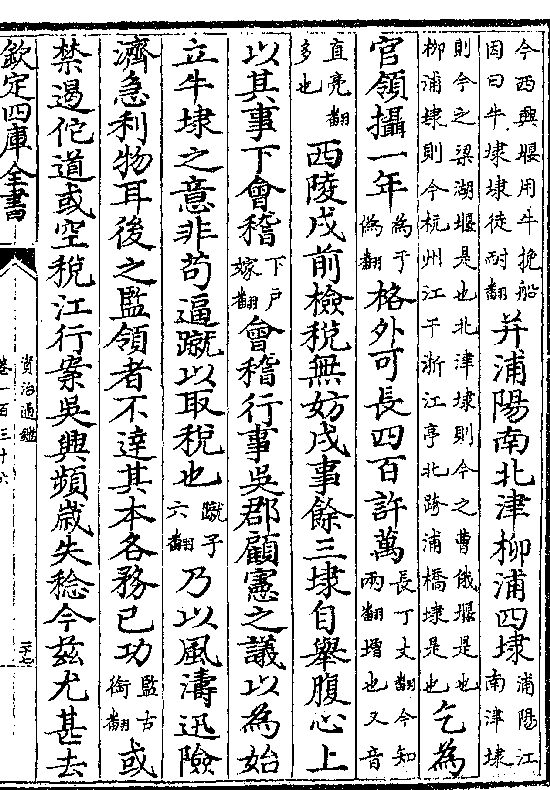 今西興堰用牛挽船因曰牛埭埭徒耐翻并浦陽南北津柳浦四埭浦陽江南津埭
則今之梁湖堰是也北津埭則今之曹娥堰是也柳浦埭則今杭州江干浙江亭北跨浦橋埭是也乞為
官領攝一年為于偽翻格外可長四百許萬長丁丈翻今知兩翻增也又音
直亮翻多也西陵戍前檢稅無妨戍事餘三埭自舉腹心上
以其事下會稽下戶嫁翻會稽行事吳郡顧憲之議以為始
立牛埭之意非苟逼蹴以取稅也蹴子六翻乃以風濤迅險
濟急利物耳後之監領者不達其本各務已功監古銜翻或
禁遏佗道或空稅江行案吳興頻歲失稔今茲尤甚去
欽定四庫全書
資治通鑑
卷一百三十六
三十七